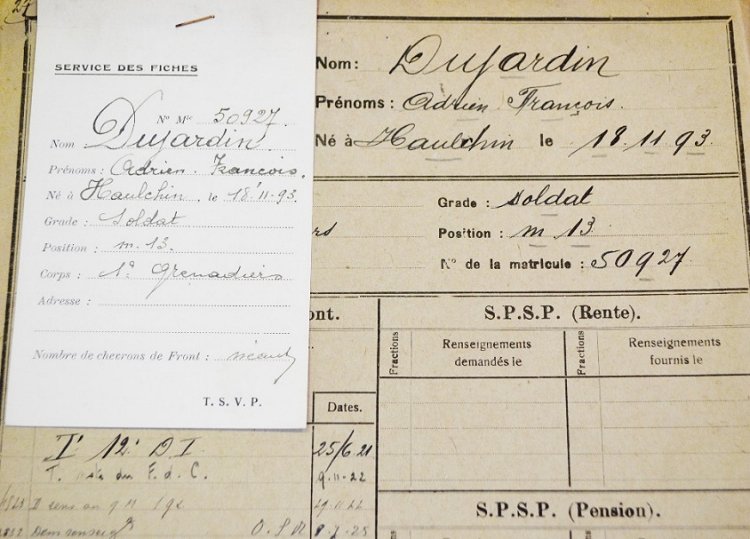 SERVICE DES FICHES
N° Mle 50927.
Nom Dujardin.
Prénoms : Adrien François.
Né à Haulchin, le 18-11-93.
Grade : Soldat
Position : m. 13.
Corps : 1er Grenadiers
Adresse :
Nombre de chevrons de Front : néant
T. S. V. P.
27
Nom: Dujardin
Prénoms : Adrien François.
Né à Haulchin le 18.11.93.
Grade : Soldat
Position : m 13.
N° de la matricule : 50927
ont.
Dates.
I' 12' D I 25/6 21
T. du F. d. C. 9-11-22
S.P.S.P. (Rente).
Fractions
Renseignements
demandés le
Fractions
Renseignements
fournis le
S.P.S.P. (Pension).